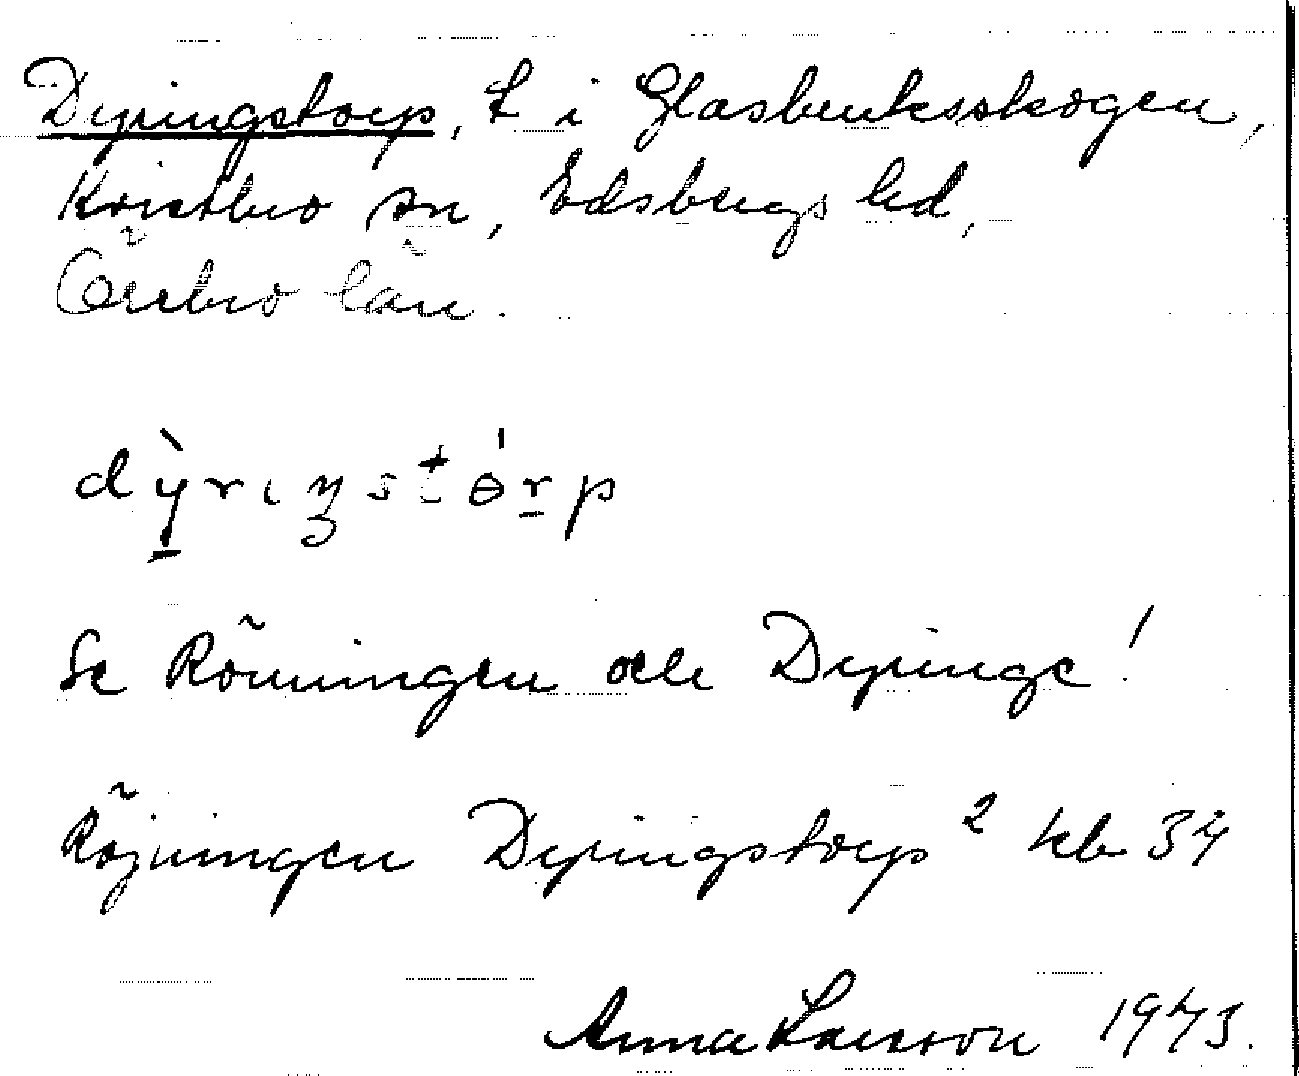 Dyringstorp, t i Glasbruksskogen,
Kvistbro sn, Edsbergs hd,
Örebro län.
dỳ̠rıŋstɵ́r̠p
Se Rönningen och Dyringe!
Röjningen Dyringstorp 2 kb 34
Anna Larsson 1973.